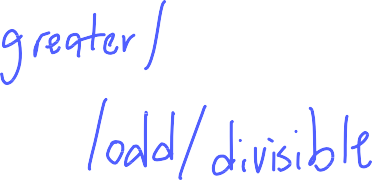 greater/
/odd/divisible